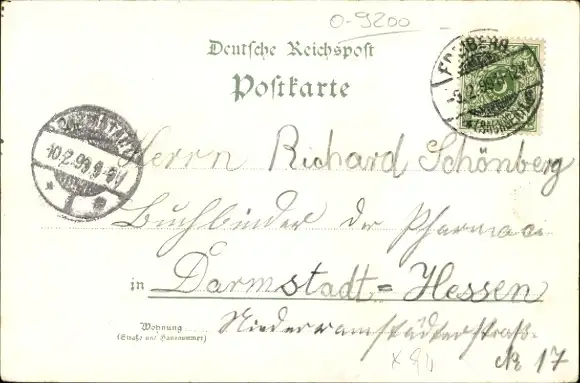 0-9200
Deutsche Reichspost
Postkarte
10.2.99. 9-
Herrn Richard Schönberg
Buchbinder der Pharmaci
in Darmstadt=Hessen
Wohnung
(Straße und Hausnummer)
Niederramstädterstraße
No 17